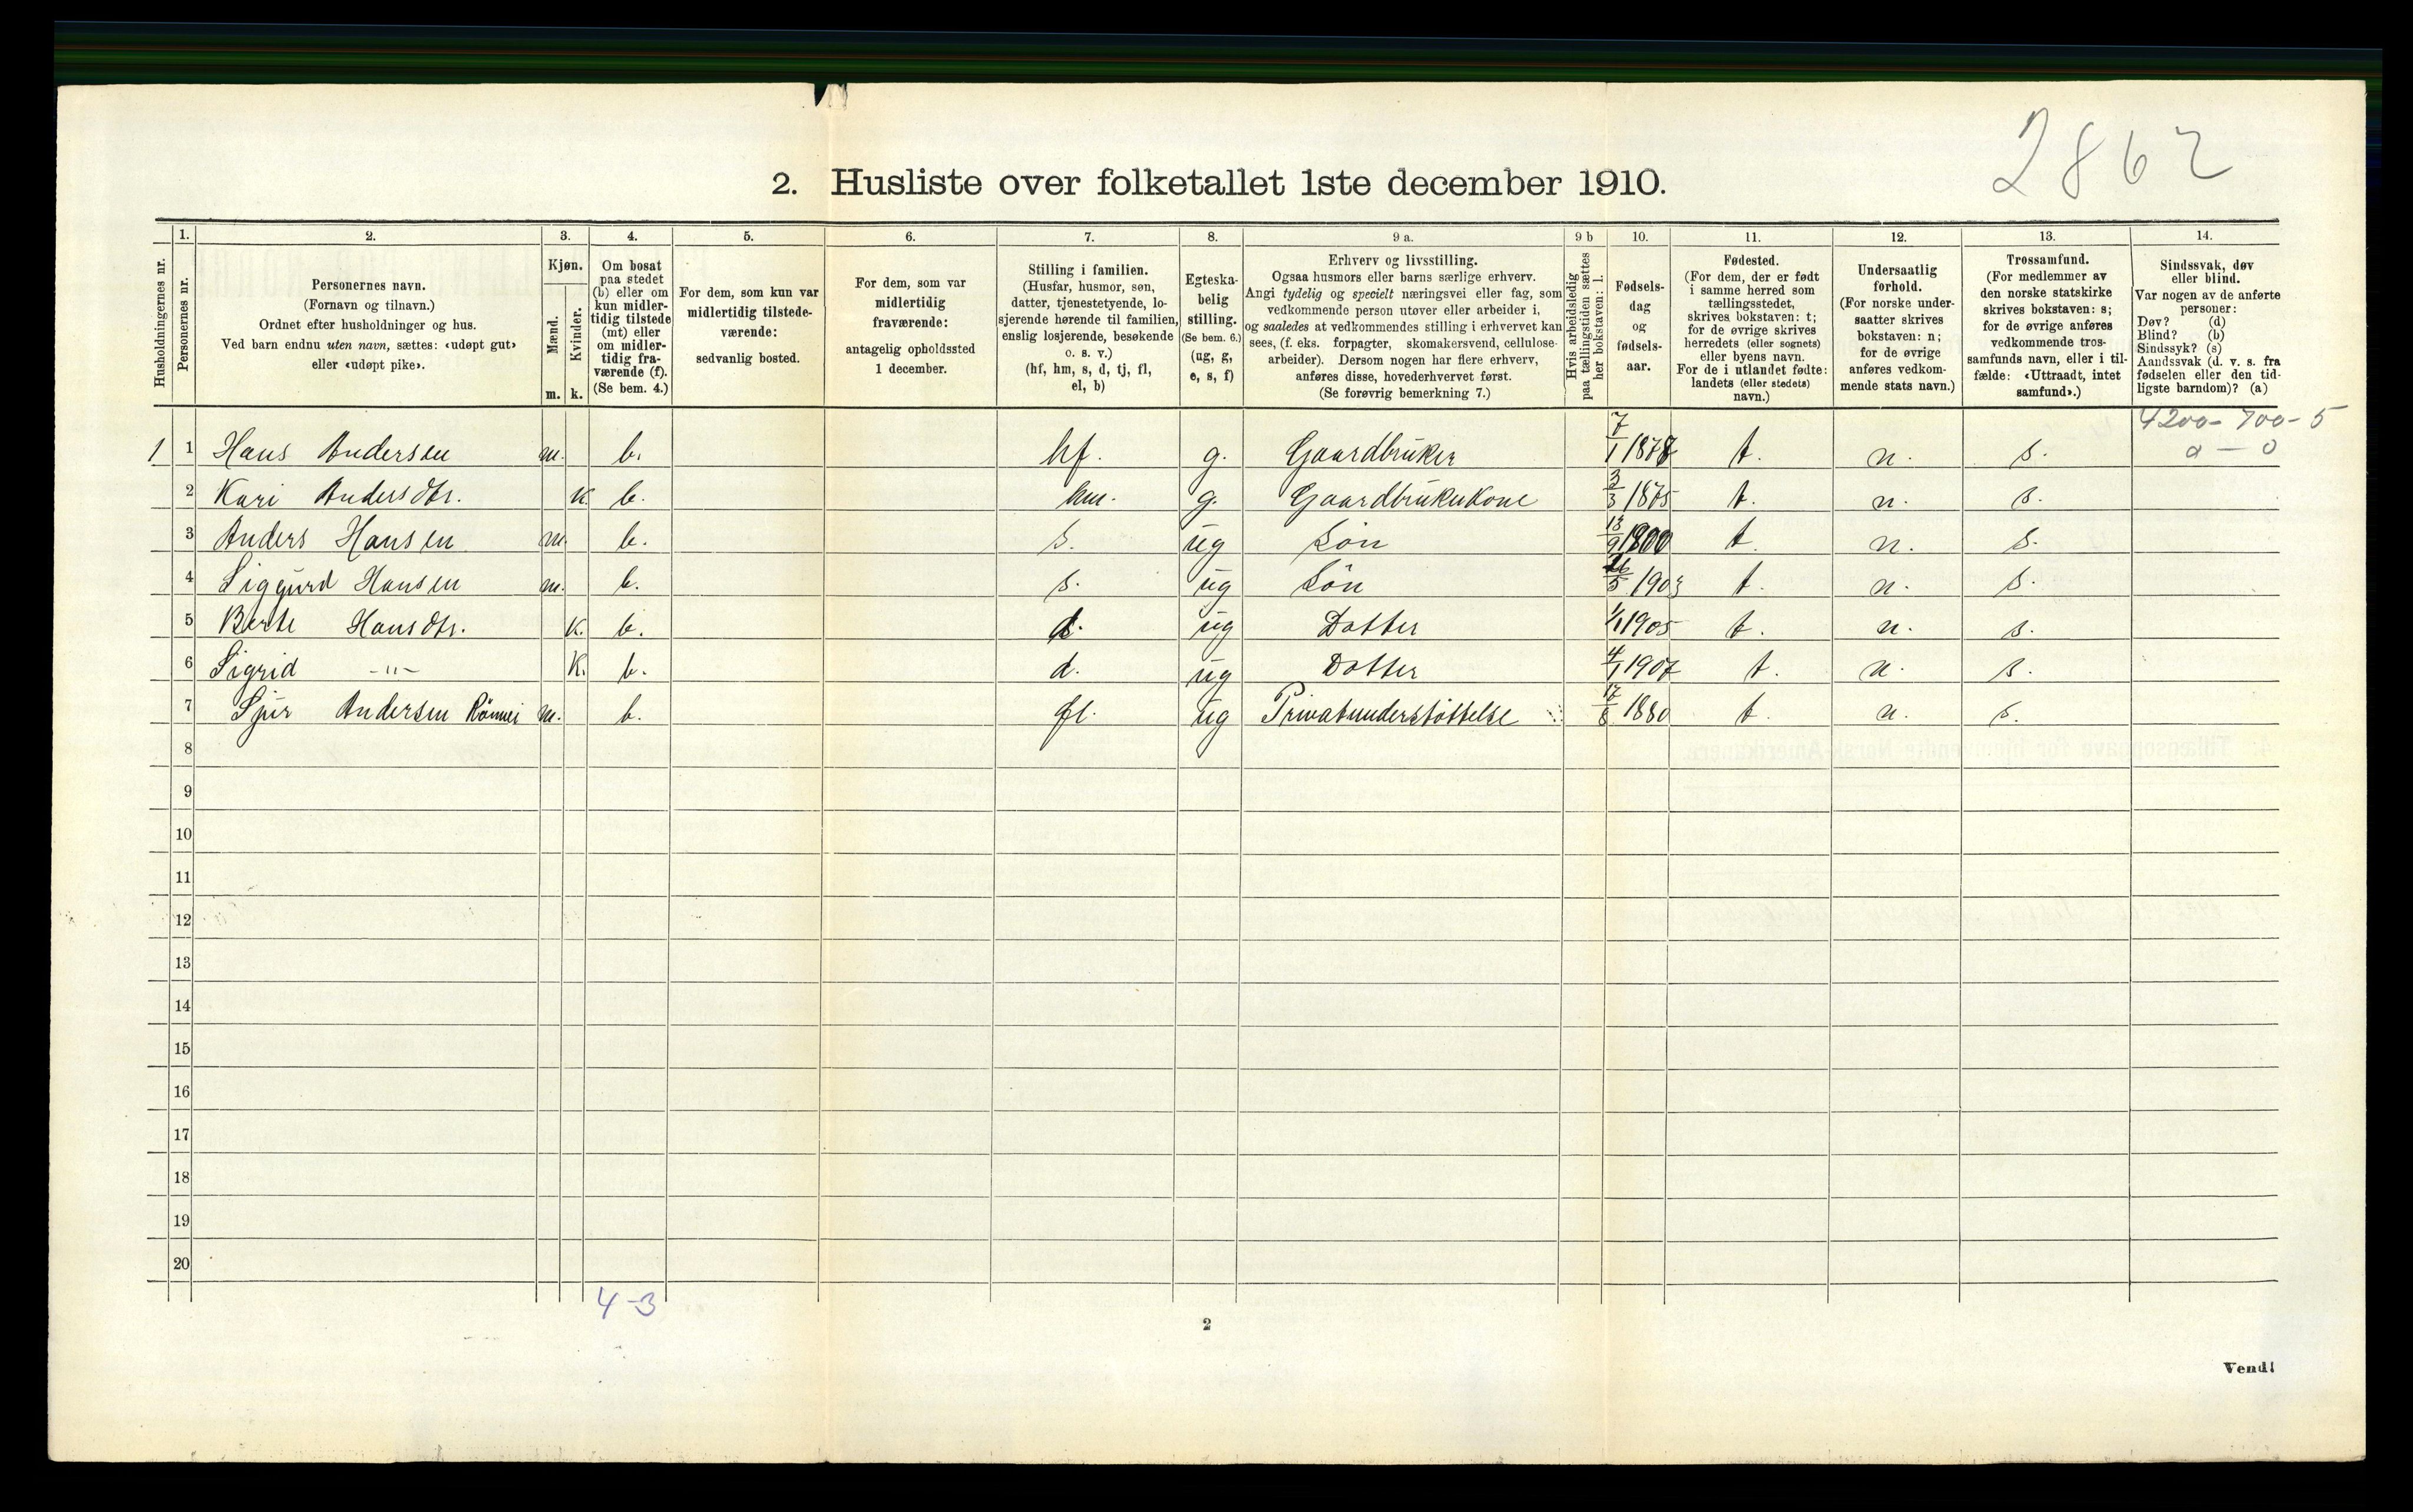 2862
2. Husliste over folketallet 1ste december 1910.
Husholdningernes nr.
1.
Personernes nr.
2.
Personernes navn.
(Fornavn og tilnavn.)
Ordnet efter husholdninger og hus.
Ved barn endnu uten navn, sættes: «udøpt gut»
eller «udøpt pike».
3.
Kjøn.
Mænd.
Kvinder.
m. k.
4.
Om bosat
paa stedet
(b) eller om
kun midler-
tidig tilstede
(mt) eller
om midler-
tidig fra-
værende (f).
(Se bem. 4.)
5.
For dem, som kun var
midlertidig tilstede-
værende:
sedvanlig bosted.
6.
For dem, som var
midlertidig
fraværende:
antagelig opholdssted
1 december.
7.
Stilling i familien.
(Husfar, husmor, søn,
datter, tjenestetyende, lo-
sjerende hørende til familien,
enslig losjerende, besøkende
o. s. v.)
(hf, hm, s, d, tj, fl,
el, b)
8.
Egteska-
belig
stilling.
(Se bem. 6.)
(ug, g,
e, s, f)
9 a.
Erhverv og livsstilling.
Ogsaa husmors eller barns særlige erhverv.
Angi tydelig og specielt næringsvei eller fag, som
vedkommende person utøver eller arbeider i,
og saaledes at vedkommendes stilling i erhvervet kan
sees, (f. eks. forpagter, skomakersvend, cellulose-
arbeider). Dersom nogen har flere erhverv,
anføres disse, hovederhvervet først.
(Se forøvrig bemerkning 7.)
9 b
Hvis arbeidsledig
paa tællingstiden sættes
her bokstaven: l.
10.
Fødsels-
dag
og
fødsels-
aar.
11.
Fødested.
(For dem, der er født
i samme herred som
tællingsstedet,
skrives bokstaven: t;
for de øvrige skrives
herredets (eller sognets)
eller byens navn.
For de i utlandet fødte:
landets (eller stedets)
navn.)
12.
Undersaatlig
forhold.
(For norske under-
saatter skrives
bokstaven: n;
for de øvrige
anføres vedkom-
mende stats navn.)
13.
Trossamfund.
(For medlemmer av
den norske statskirke
skrives bokstaven: s;
for de øvrige anføres
vedkommende tros-
samfunds navn, eller i til-
fælde: «Uttraadt, intet
samfund».)
14.
Sindssvak, døv
eller blind.
Var nogen av de anførte
personer:
Døv? (d)
Blind? (b)
Sindssyk? (s)
Aandssvak (d. v. s. fra
fødselen eller den tid-
ligste barndom)? (a)
4200-700-5
a - 0
1 1 Hans Andersen m. b. hf. g. Gaardbruker 7/1 1878 t. n. s.
2 Kari Andersdtr. k. b. hm. g. Gaardbrukerkone 3/3 1875 t. n. s.
3 Anders Hansen m. b. s. ug Søn 13/9 1900 t. n. s.
4 Siggurd Hansen m. b. s. ug Søn 1903 t. n. s.
5 Berte Hansdtr. k. b. d. ug Datter 1/1 1905 t. n. s.
6 Sigrid -"- k. b. d. ug Datter 4/1 1907 t. n. s.
7 Sjur Andersen m. b. fl. ug Privatunderstøttelse 17/8 1880 t. n. s.
8
9
10
11
12
13
14
15
16
17
18
19
20
4-3
2
Vend!